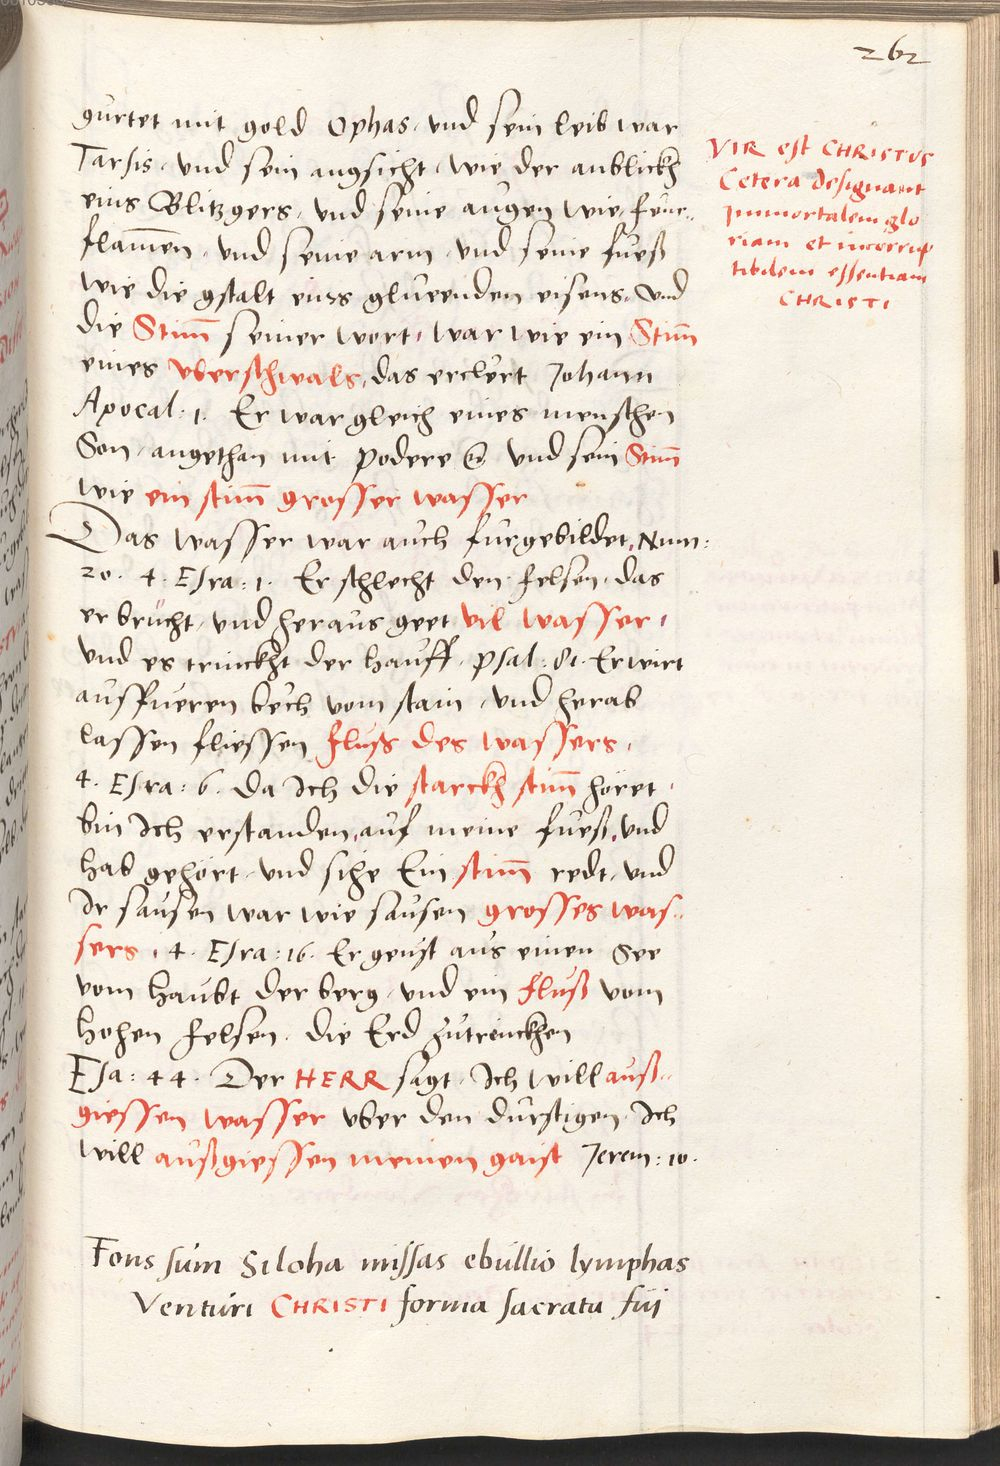 262
gurtet mit gold Ophas, und sein leib war
Tarsis, und sein angsicht, wie der anblickh
eins Blitzgers, und seine augen wie feur..
flam̄en, und seine arm, und seine fueß
wie die gstalt eins gluenden eisens, und
die Stim̄ seiner wort, war wie ein Stim̄
eines uberschwals, das erclert Johann
Apocal: 1. Er war gleich eines menschen
Son, angethan mit podere und sein Stim̄
wie ein stim̄ grosser wasser
Das wasser war auch furgebildet, Num:
20. 4. Esra: 1. Er schlecht den felsen, das
er brücht, und heraus geet vil wasser,
und es trinckht der hauff. Psal: 81. Er wirt
ausfueren bech vom stain, und herab
lassen fliessen fluss des wassers,
4. Esra: 6. Da Ich die starckh stim̄ höret,
bin Ich erstanden, auf meine fueß, und
hab gehört, und sihe Ein stim̄ redt, und
Ir sausen war wie sausen grosses was..
sers, 4. Esra: 16. Er geust aus einen See
vom haubt der berg, und ein fluß vom
hohen felsen, die Erd zutrinckhen
Esa: 44. Der HERR sagt, Ich will auß..
giessen wasser uber den durstigen, Ich
will außgiessen meinen gaist Jerem: 10.
VIR est CHRISTUS
Cetera designant
Immortalem glo
riam et incorrup
tibilem essentiam
CHRISTI
Fons sum Siloha missas ebullio lymphas
Venturi CHRISTI forma sacrata fui